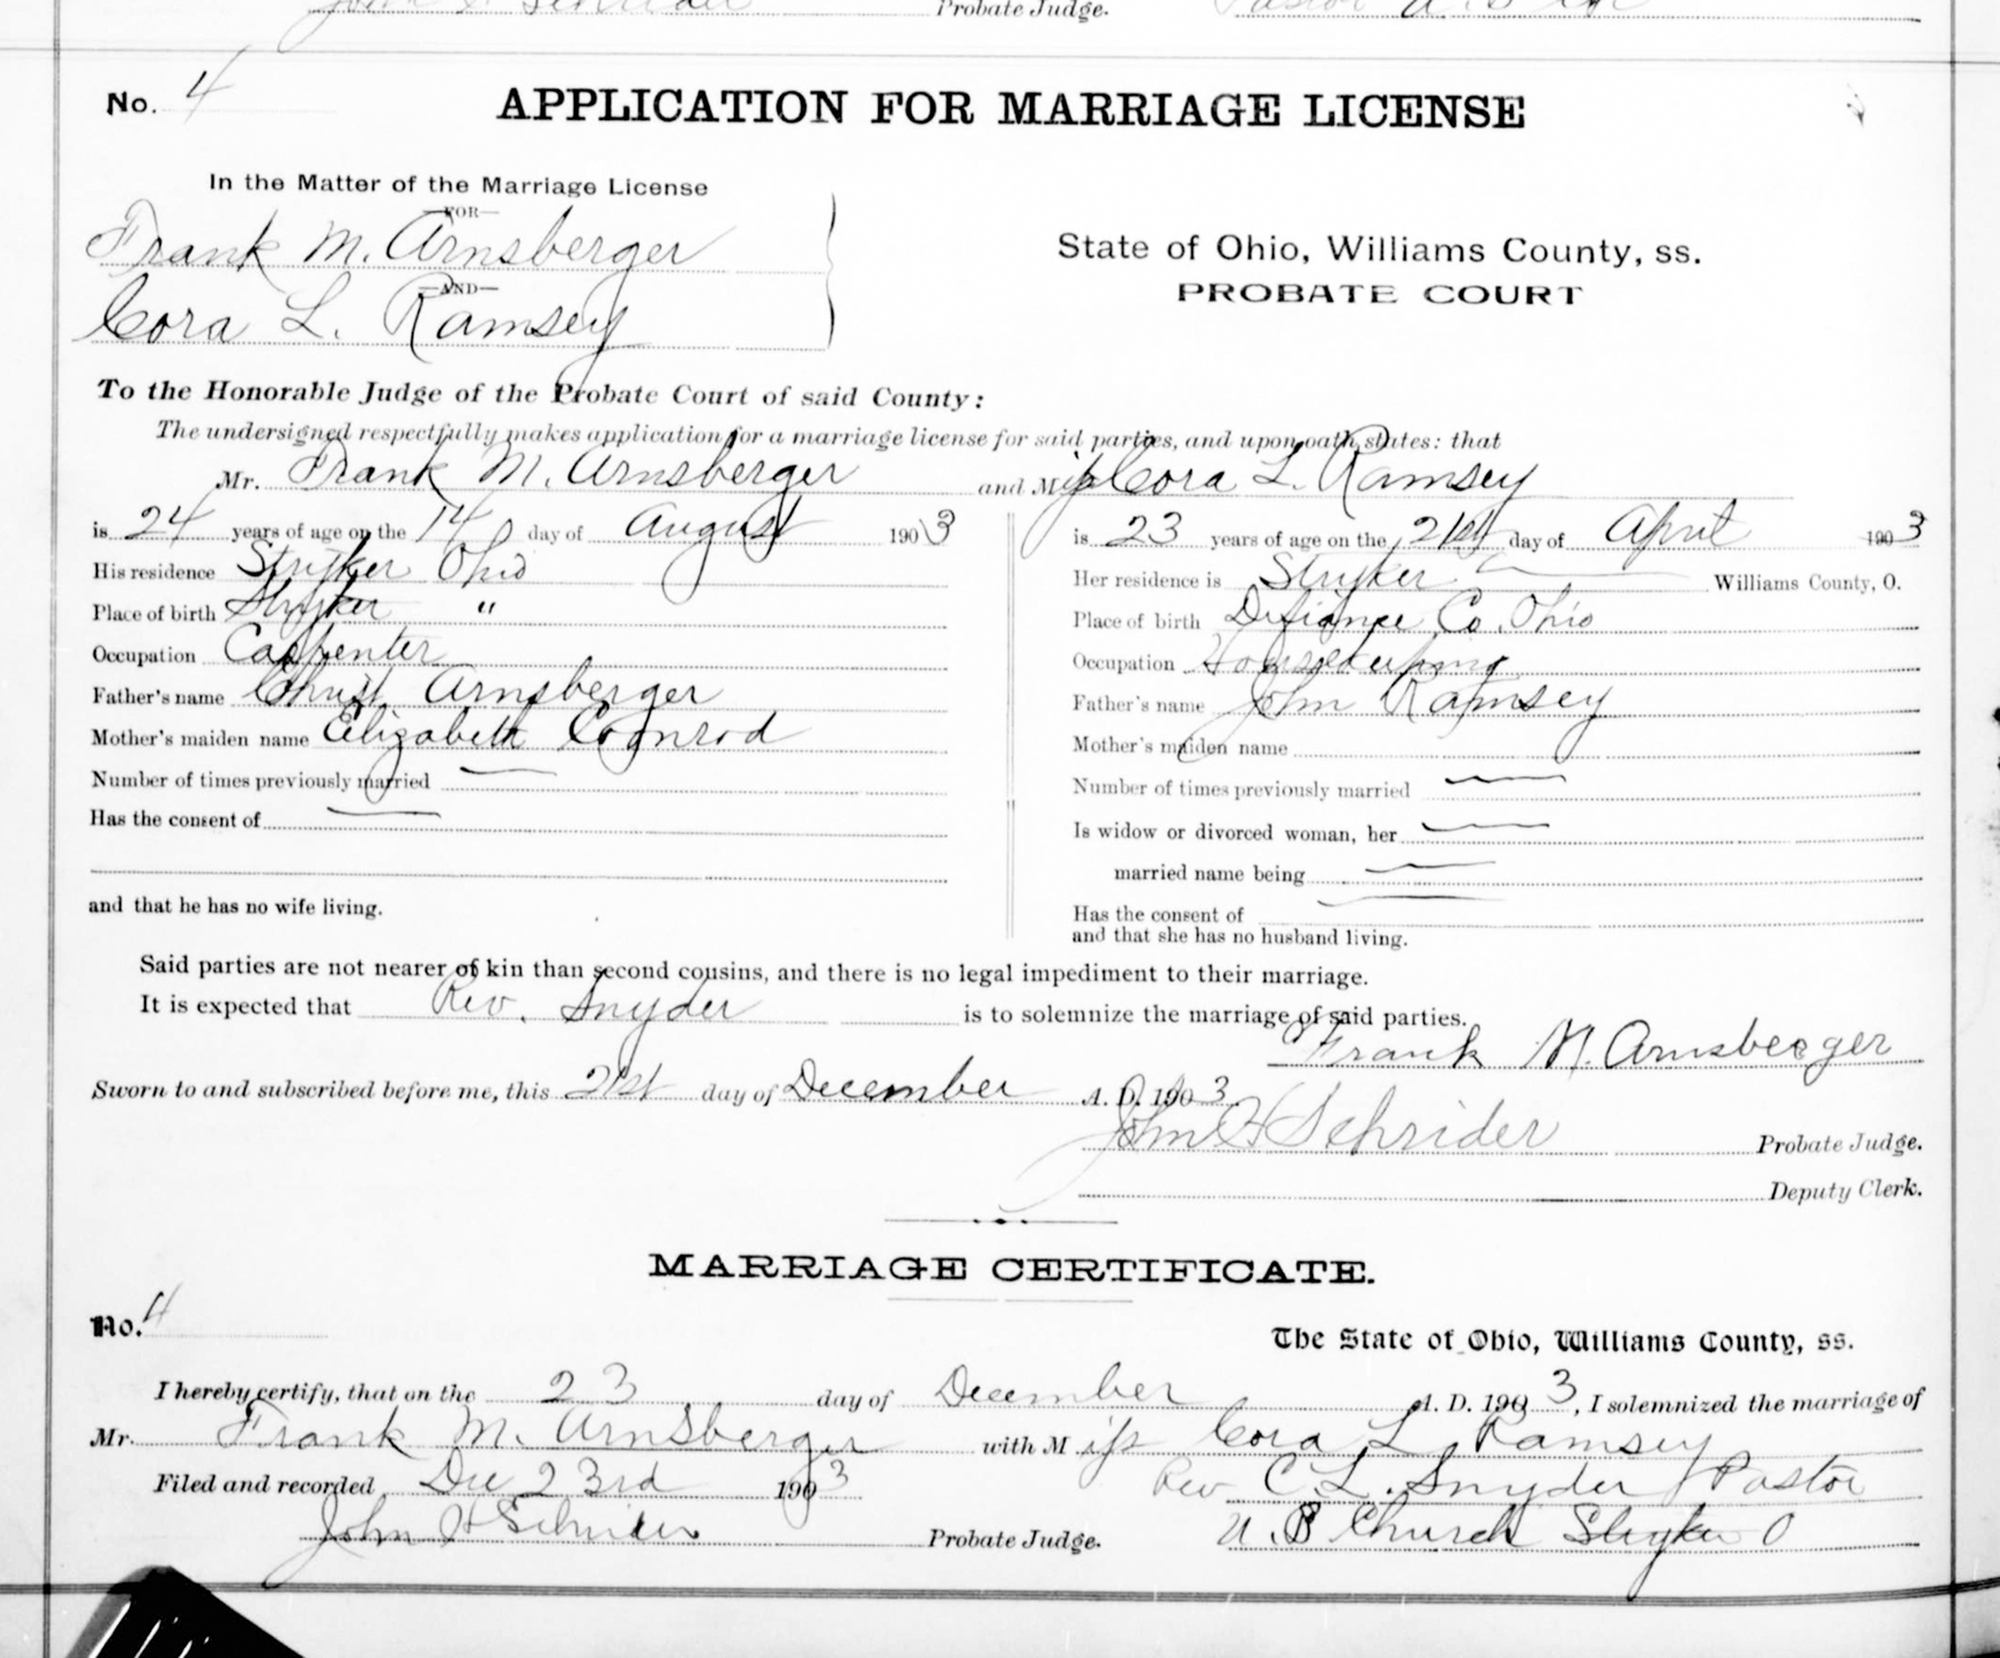 Probate Judge.
No. 4
APPLICATION FOR MARRIAGE LICENSE
In the Matter of the Marriage License
—FOR—
Frank M. Arnsberger
—AND—
Cora L. Ramsey
State of Ohio, Williams County, ss.
PROBATE COURT
To the Honorable Judge of the Probate Court of said County:
The undersigned respectfully makes application for a marriage license for said parties, and upon oath states: that
Mr. Frank M. Arnsberger and Miss Cora L. Ramsey
is 24 years of age on the 14 day of August 1903
His residence Stryker Ohio
Place of birth Stryker "
Occupation Carpenter
Father's name Christ Arnsberger
Mother's maiden name Elizabeth Coonrod
Number of times previously married —
Has the consent of —
and that he has no wife living.
is 23 years of age on the 21st day of April 1903
Her residence is Stryker Williams County, O.
Place of birth Defiance Co. Ohio
Occupation Housekeeping
Father's name John Ramsey
Mother's maiden name
Number of times previously married —
Is widow or divorced woman, her —
married name being —
Has the consent of —
and that she has no husband living.
Said parties are not nearer of kin than second cousins, and there is no legal impediment to their marriage.
It is expected that Rev. Snyder is to solemnize the marriage of said parties.
Frank M. Arnsberger
Sworn to and subscribed before me, this 21st day of December A. D. 1903
John H Schrider Probate Judge.
Deputy Clerk.
MARRIAGE CERTIFICATE.
No. 4
The State of Ohio, Williams County, ss.
I hereby certify, that on the 23 day of December A. D. 1903, I solemnized the marriage of
Mr. Frank M. Arnsberger with Miss Cora L. Ramsey
Filed and recorded Dec 23rd 1903
Rev C L. Snyder Pastor
John H Schrider Probate Judge.
U. B Church Stryker O